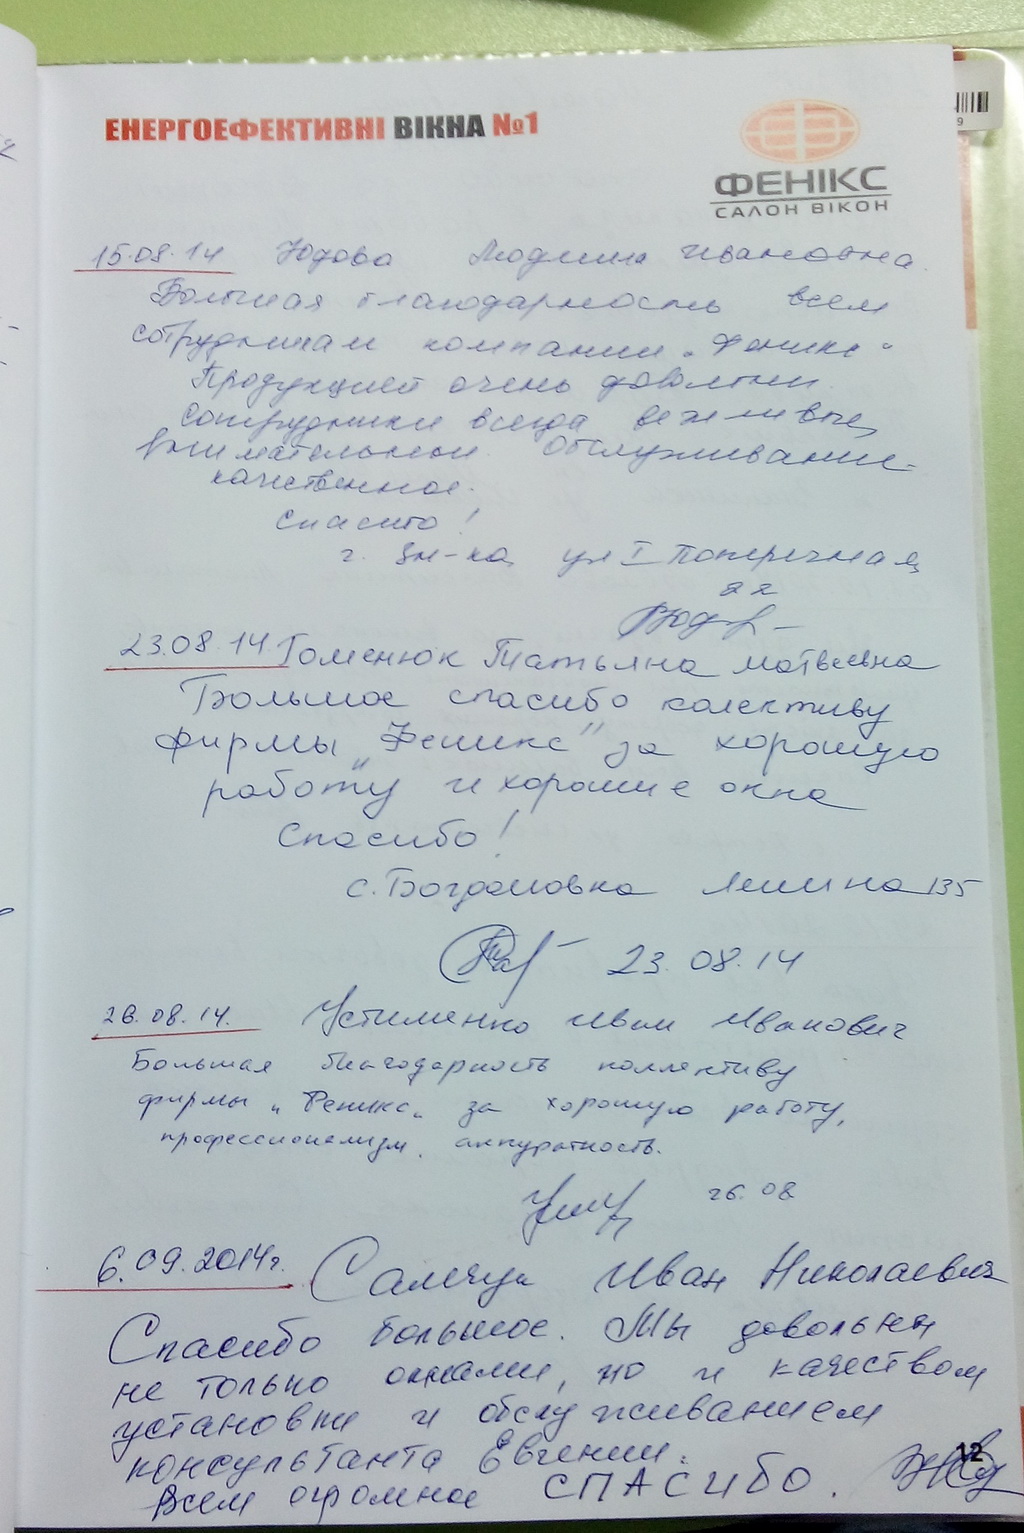 ЕНЕРГОЕФЕКТИВНІ ВІКНА №1
ФЕНІКС
САЛОН ВІКОН
15.08.14 Юдова Людмила Ивановна.
Большая благодарность всем
сотрудникам компании "Феникс"
Продукцией очень довольны.
Сотрудники всегда вежливые,
внимательные. Обслуживание
качественное.
Спасибо!
г. Зн-ка, ул I Поперечная,
22
23.08.14 Гоменюк Татьяна Матвеевна
Большое спасибо колективу
фирмы "Феникс" за хорошую
работу и хорошие окна
Спасибо!
с. Богдановка Ленина 135
23.08.14
26.08.14. Устименко Иван Иванович
Большая благодарность коллективу
фирмы "Феникс" за хорошую работу,
профессионализм, аккуратность.
26.08
6.09.2014г. Иван Николаевич
Спасибо большое. Мы довольны
не только окнами, но и качеством
установки и обслуживанием
консультанта Евгении.
Всем огромное СПАСИБО.
12